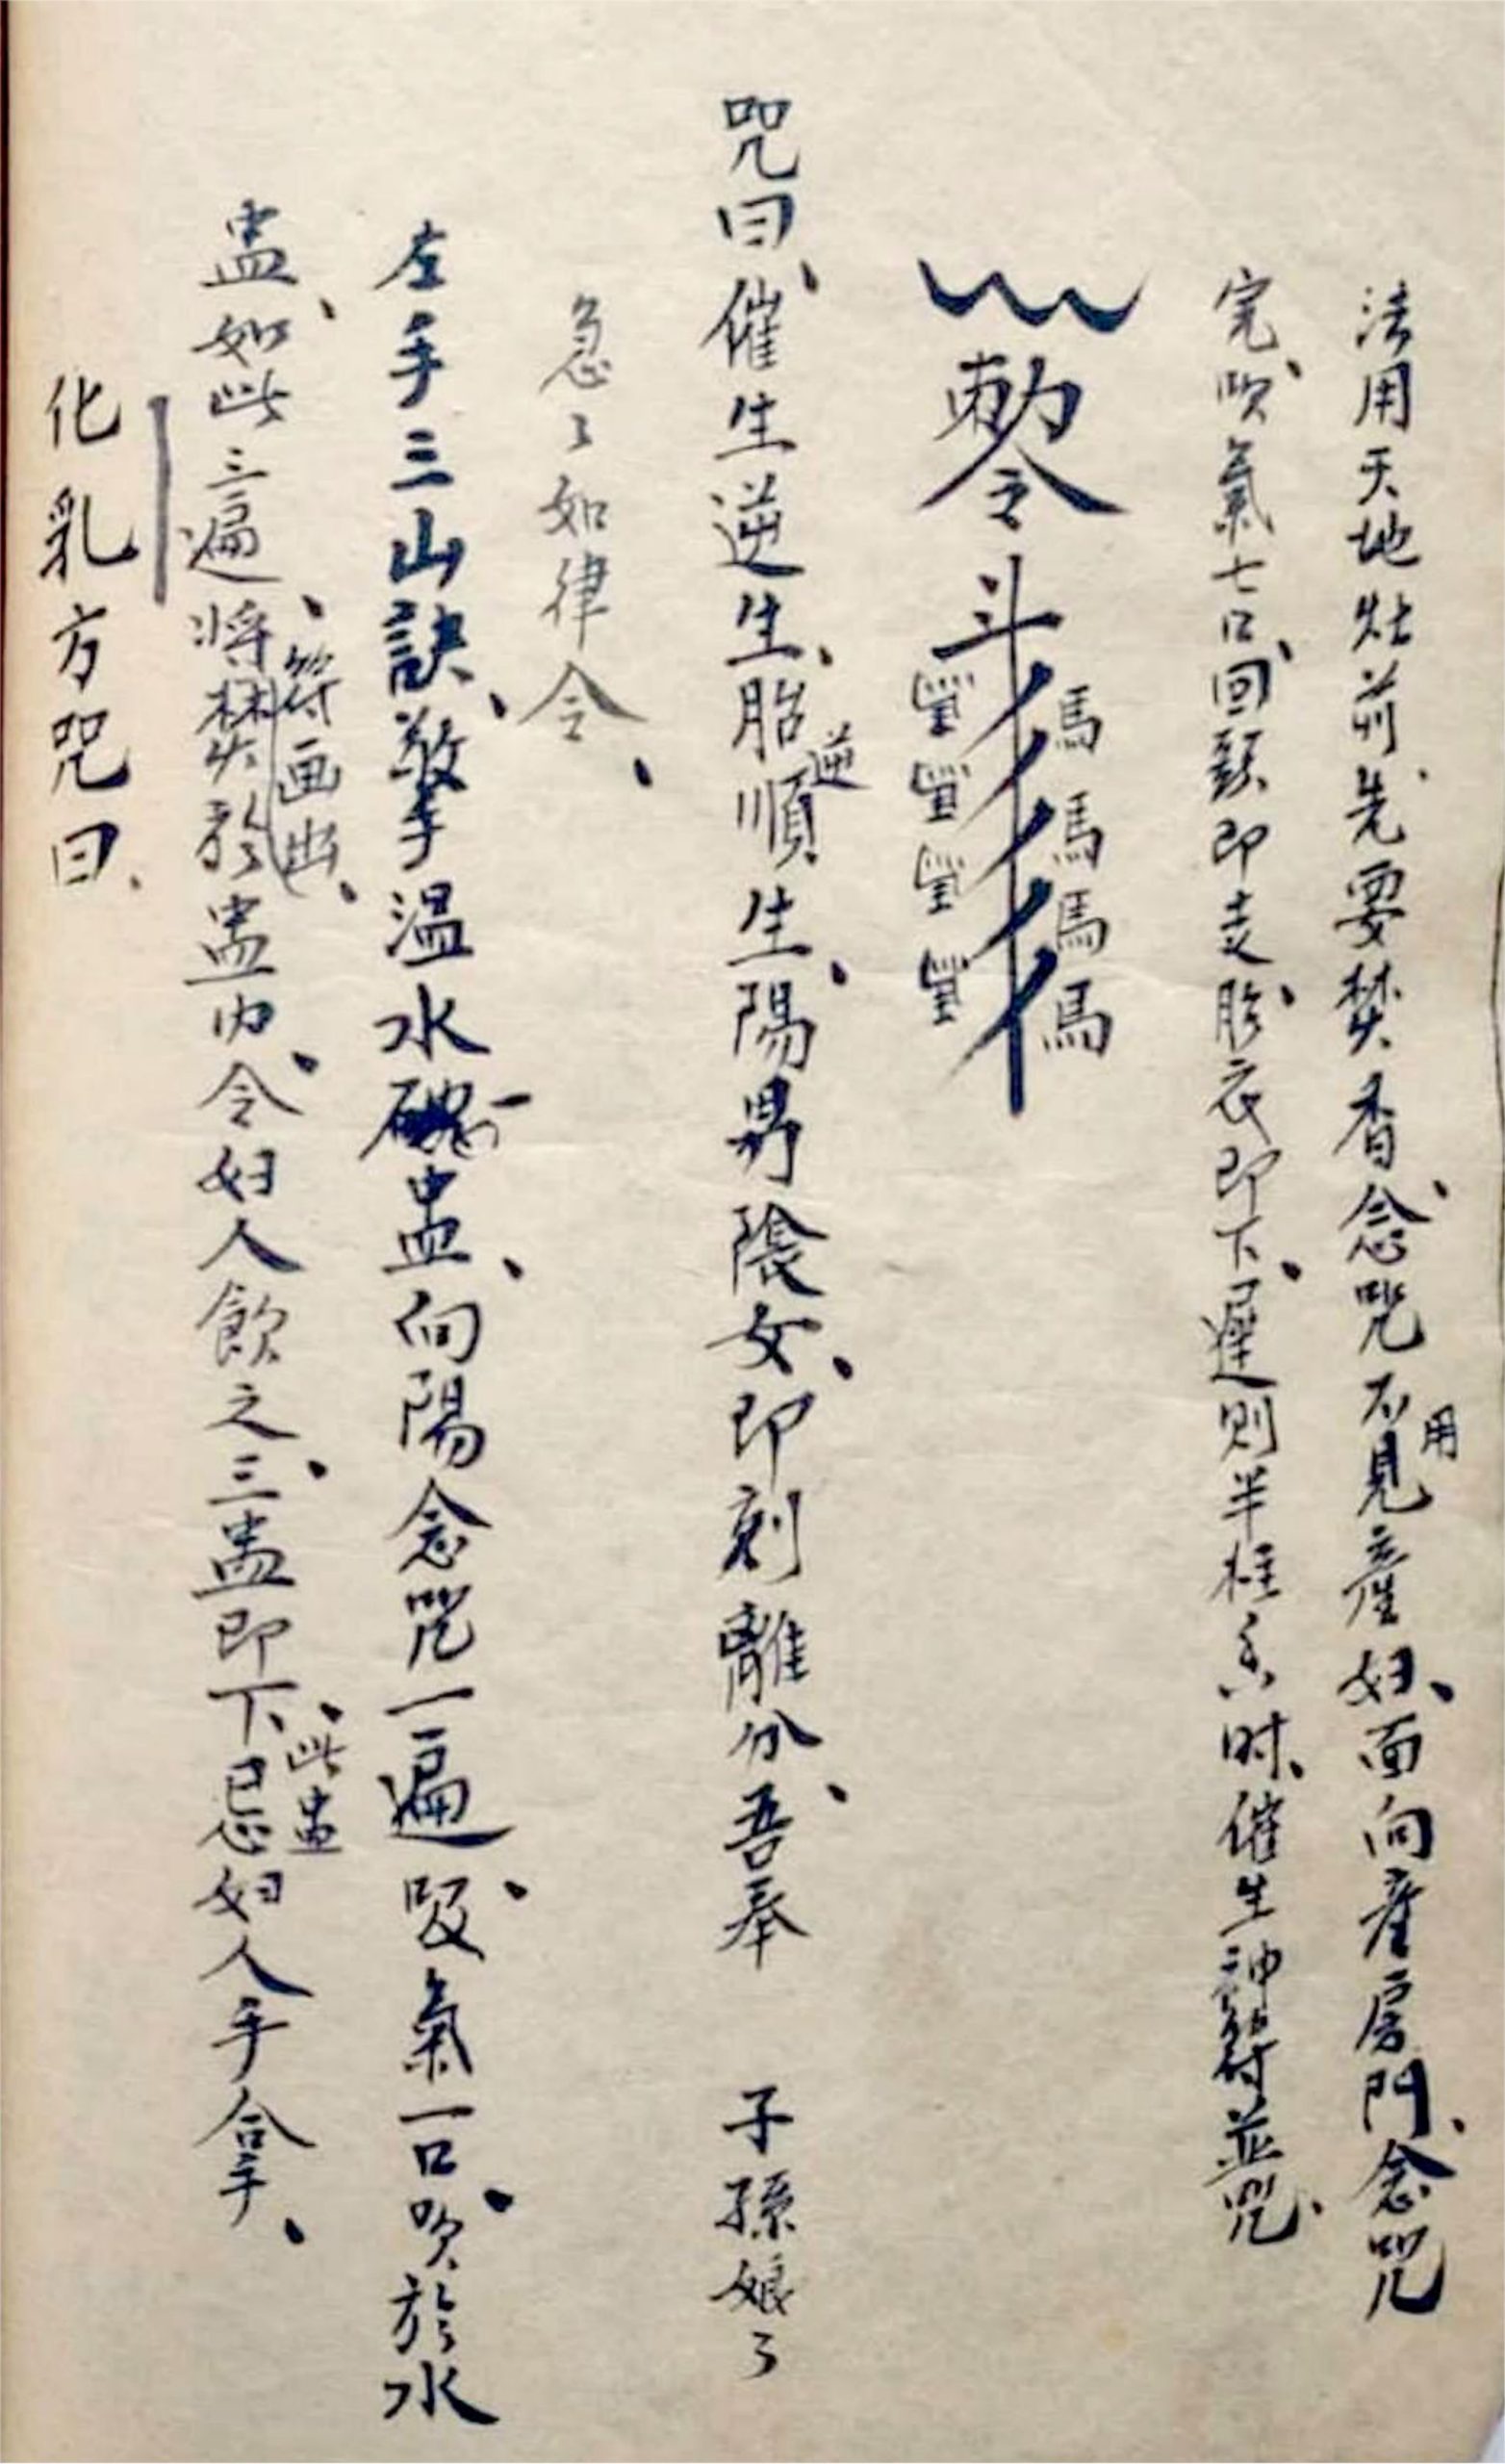 法用天地灶前、先要焚香、念咒不用見產妇、面向產房門、念咒
完、吹氣七口、回頭即走、胎衣即下、遲則半柱香时、催生神符並咒、
勅令斗
馬馬馬馬
咒曰、催生逆生、胎逆順生、陽男陰女、即刻離分、吾奉 子孫娘〻
急〻如律令、
左手三山訣、擎温水一盅、向陽念咒一遍、吸氣一口、吹於水
盅、如此三遍、將符画出、焚於盅内、令妇人飲之、三盅即下、此盅忌妇人手拿、
化乳方咒曰、